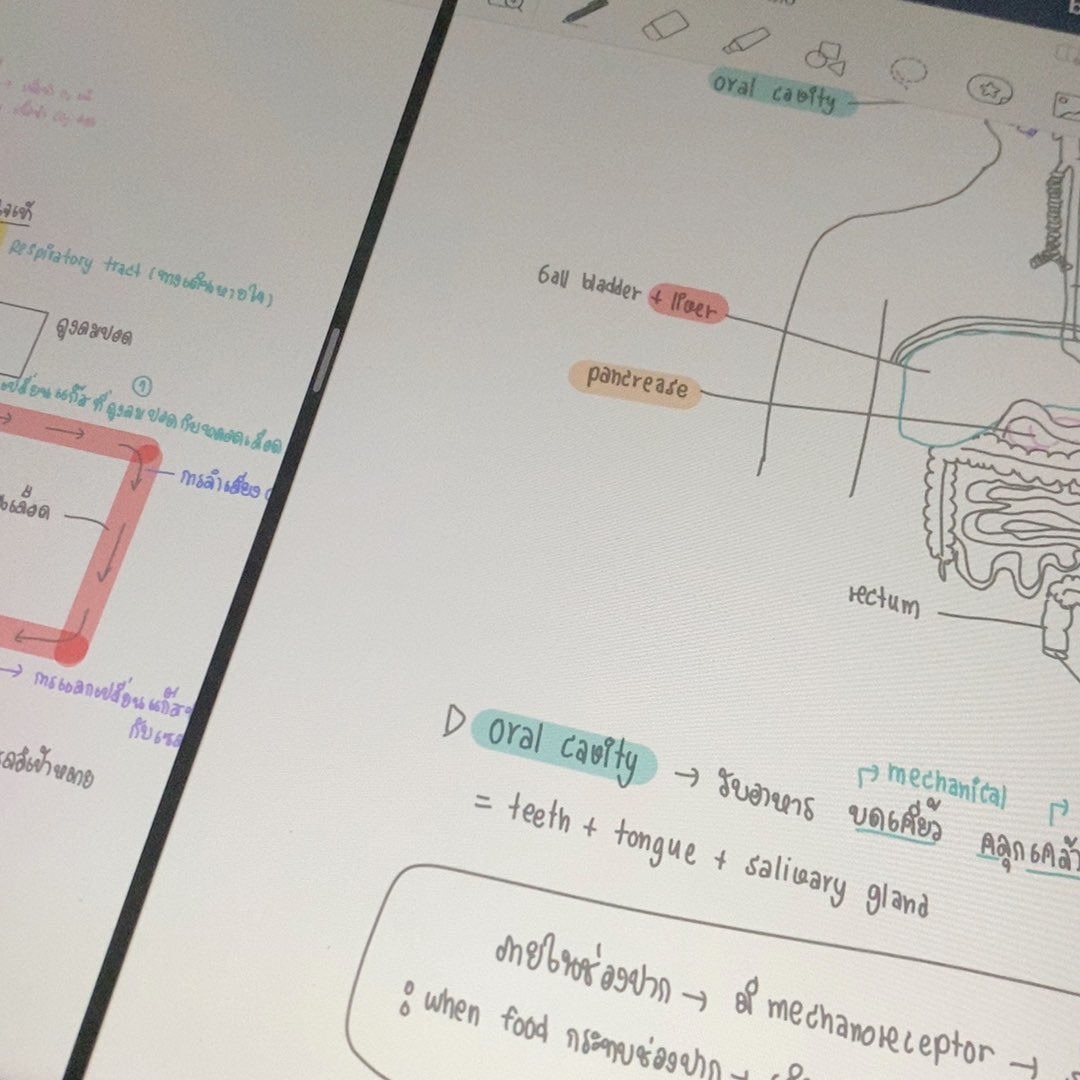 Respiratory tract (ทางเดินหายใจ)
ถุงลมปอด
①
เปลี่ยนแก๊สที่ถุงลมปอดกับหลอดเลือด
การลำเลียง
เลือด
→ การแลกเปลี่ยนแก๊ส
กับเซล
oral cavity
Gall bladder + liver
pancrease
rectum
▷ oral cavity → รับอาหาร บดเคี้ยว คลุกเคล้า
mechanical
= teeth + tongue + salivary gland
ภายในช่องปาก → มี mechanoreceptor →
: when food กระทบช่องปาก →